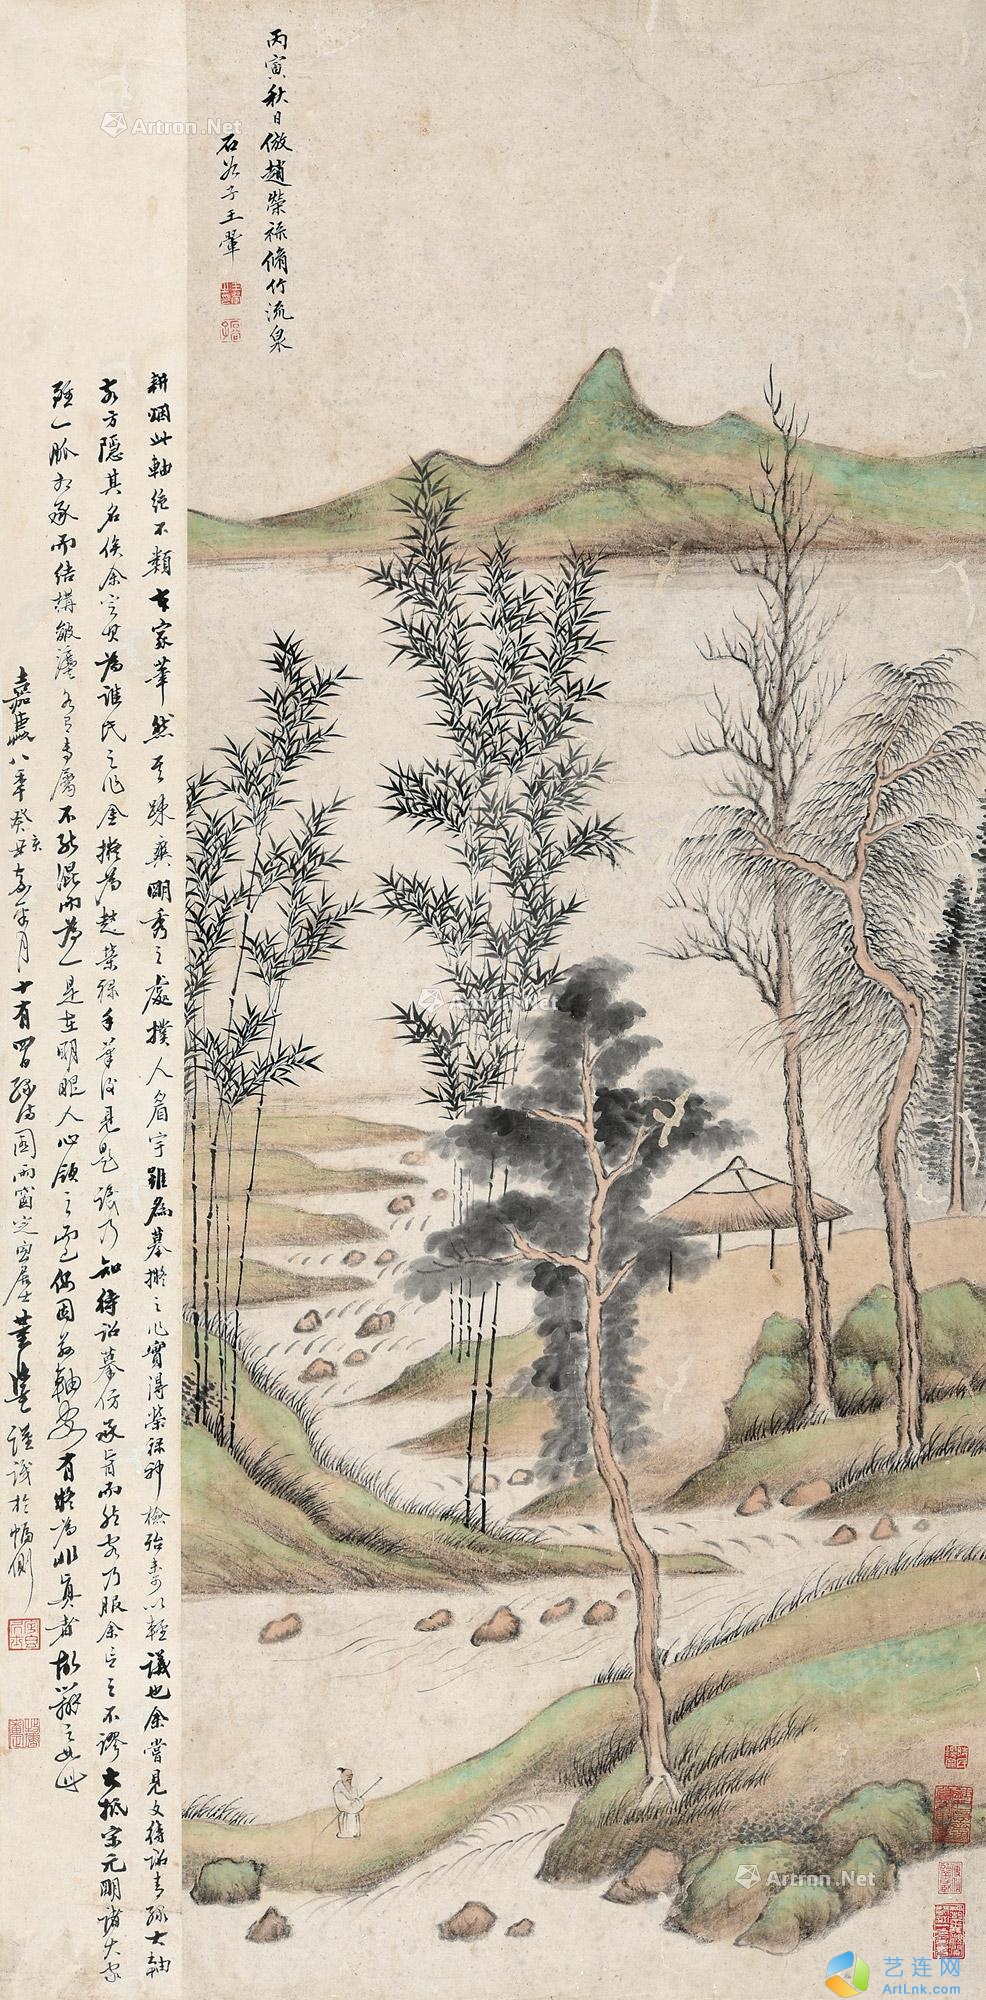 丙寅秋日倣趙榮祿脩竹流泉
石谷子王翬
耕烟此軸絶不類古家筆然其踈爽明秀之處撲人眉宇雖為摹擬之作實得榮祿神檢殆未可以輕議也余嘗見文待詔青綠大軸
方隱其名俟余定其為誰氏之作余擬為趙榮祿手筆後見題識乃知待詔摹仿承旨而作客乃服余言之不謬大抵宋元明諸大家
雖一脈相承而結構皴染各有專屬不能混而為一是在明眼人心領之而已因此軸有疑為非真者故辨之如此
嘉慶八年癸亥嘉平月十有四日雨窗定宜居士董謹識於幅側
Artron.Net
Artron.Net
Artron.Net
艺连网
ArtLnk.com